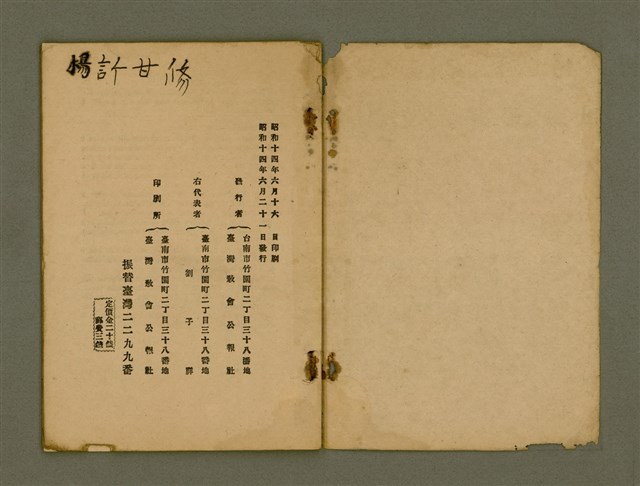 楊許甘修
昭和十四年六月十六日印刷
昭和十四年六月二十一日發行
發行者
台南市竹園町二丁目三十八番地
臺灣敎會公報社
右代表者
臺南市竹園町二丁目三十八番地
劉子祥
印刷所
臺南市竹園町二丁目三十八番地
臺灣敎會公報社
振替臺灣二二九九番
定價金二十錢
郵費三錢